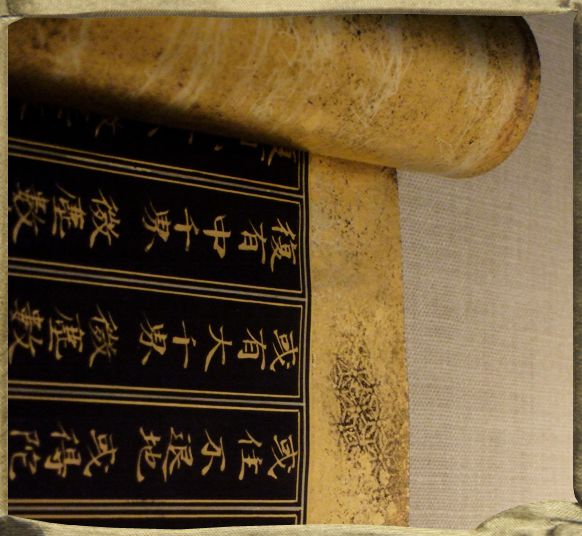 或住不退地或得陀
或有大千界微塵數
復有中千界微塵數